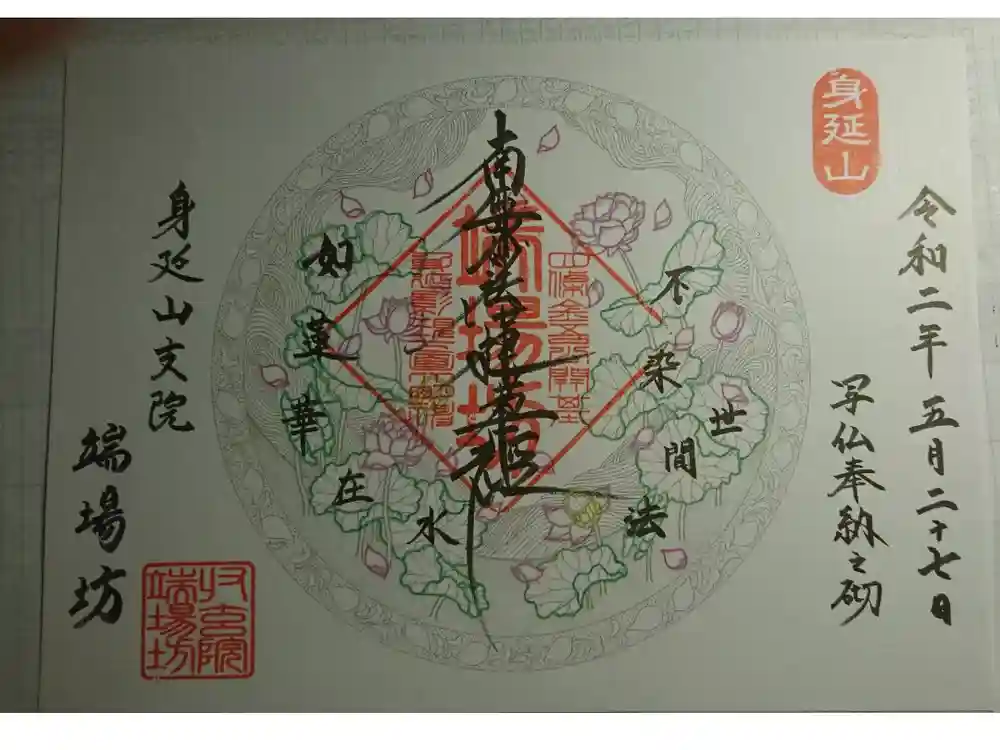 身延山
令和二年 五月二十七日
写仏奉納之砌
不染世間法
南無妙法蓮華経
四條金吾開基
端場坊
如蓮華在水
身延山支院
端場坊
端場坊